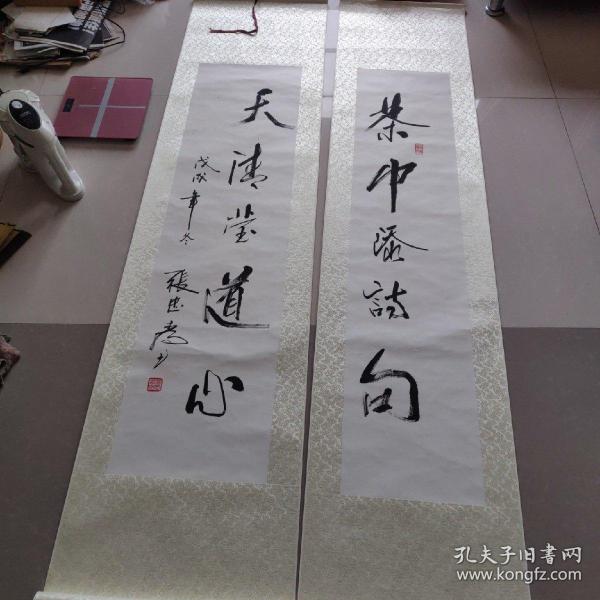 茶中添詩句
天清瑩道心
戊戌年冬
張忠尚书
孔夫子旧书网
www.kongfz.com